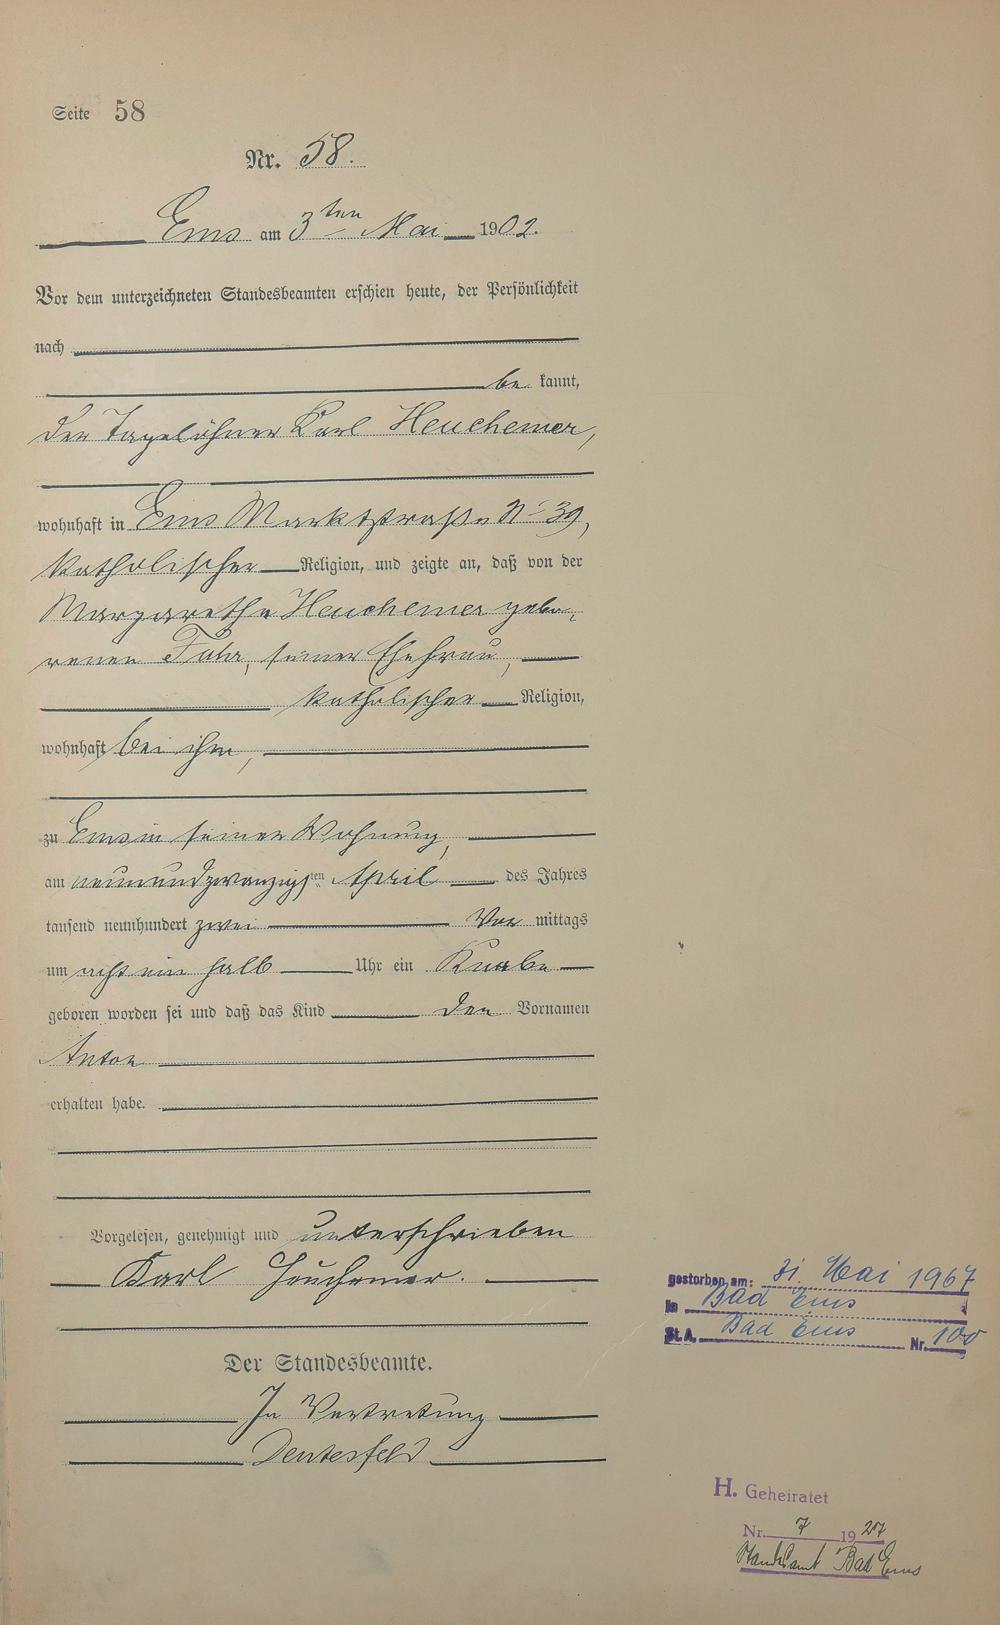 Seite 58
Nr. 58.
Ems am 3ten Mai 1902.
Vor dem unterzeichneten Standesbeamten erschien heute, der Persönlichkeit
nach
be kannt,
der Tagelöhner Karl Heuchemer,
wohnhaft in Ems Marktstraße No 39,
katholischer Religion, und zeigte an, daß von der
Margarethe Heuchemer gebo-
renen Fahr, seiner Ehefrau,
katholischer Religion,
wohnhaft bei ihm,
zu Ems in seiner Wohnung,
am neunundzwanzigsten April des Jahres
tausend neunhundert zwei Vor mittags
um acht ein halb Uhr ein Knabe
geboren worden sei und daß das Kind den Vornamen
Anton
erhalten habe.
Vorgelesen, genehmigt und unterschrieben
Karl Heuchemer.
Der Standesbeamte.
In Vertretung
gestorben am: 31. Mai 1967
in Bad Ems
St.A. Bad Ems Nr. 100
H. Geheiratet
Nr. 7 1927
Standesamt Bad Ems